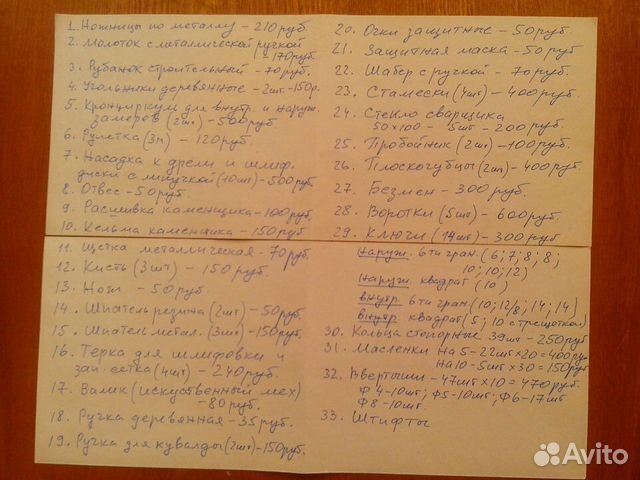 1. Ножницы по металлу - 210 руб.
2. Молоток с металлической ручкой
- 170 руб.
3. Рубанок строительный - 70 руб.
4. Угольники деревянные - 2 шт. - 150 р.
5. Кронциркум для внутр. и наруж.
замеров (2шт) - 500 руб
6. Рулетка (3м) - 120 руб.
7. Насадка к дрели и шлиф.
диски с липучкой (10шт) - 500 руб
8. Отвес - 50 руб.
9. Расшивка каменщика - 100 руб.
10. Кельма каменщика - 150 руб
11. Щетка металлическая - 70 руб.
12. Кисть (3шт) - 150 руб.
13. Нож - 50 руб.
14. Шпатель резина (2шт) - 50 руб.
15. Шпатель метал. (3шт) - 150 руб.
16. Терка для шлифовки и
зап. сетка (4шт) - 240 руб.
17. Валик (искуственный мех)
- 80 руб.
18. Ручка деревянная - 35 руб.
19. Ручка для кувалды (2шт) - 150 руб.
20. Очки защитные - 50 руб.
21. Защитная маска - 50 руб
22. Шабер с ручкой - 70 руб.
23. Стамески (4шт) - 400 руб.
24. Стекло сварщика
50х100 - 5шт - 200 руб.
25. Пробойник (2шт) - 100 руб.
26. Плоскогубцы (2шт) - 400 руб.
27. Безмен - 300 руб.
28. Воротки (5шт) - 600 руб
29. Ключи (14шт) - 300 руб
наруж. 6ти гран. (6; 7; 8; 8;
10; 10; 12)
наруж. квадрат (10)
внутр. 6ти гран (10; 12/8; 14; 14)
внутр. квадрат (5; 10 с трещоткой)
30. Кольца стопорные 39шт - 250 руб
31. Масленки на 5 - 22шт х 20 = 400 руб
на 10 - 5шт х 30 = 150 руб.
32. Ввертыши - 47шт х 10 = 470 руб.
Ф 4 - 10шт; Ф5 - 10шт; Ф6 - 17шт
Ф8 - 10шт.
33. Штифты
Avito